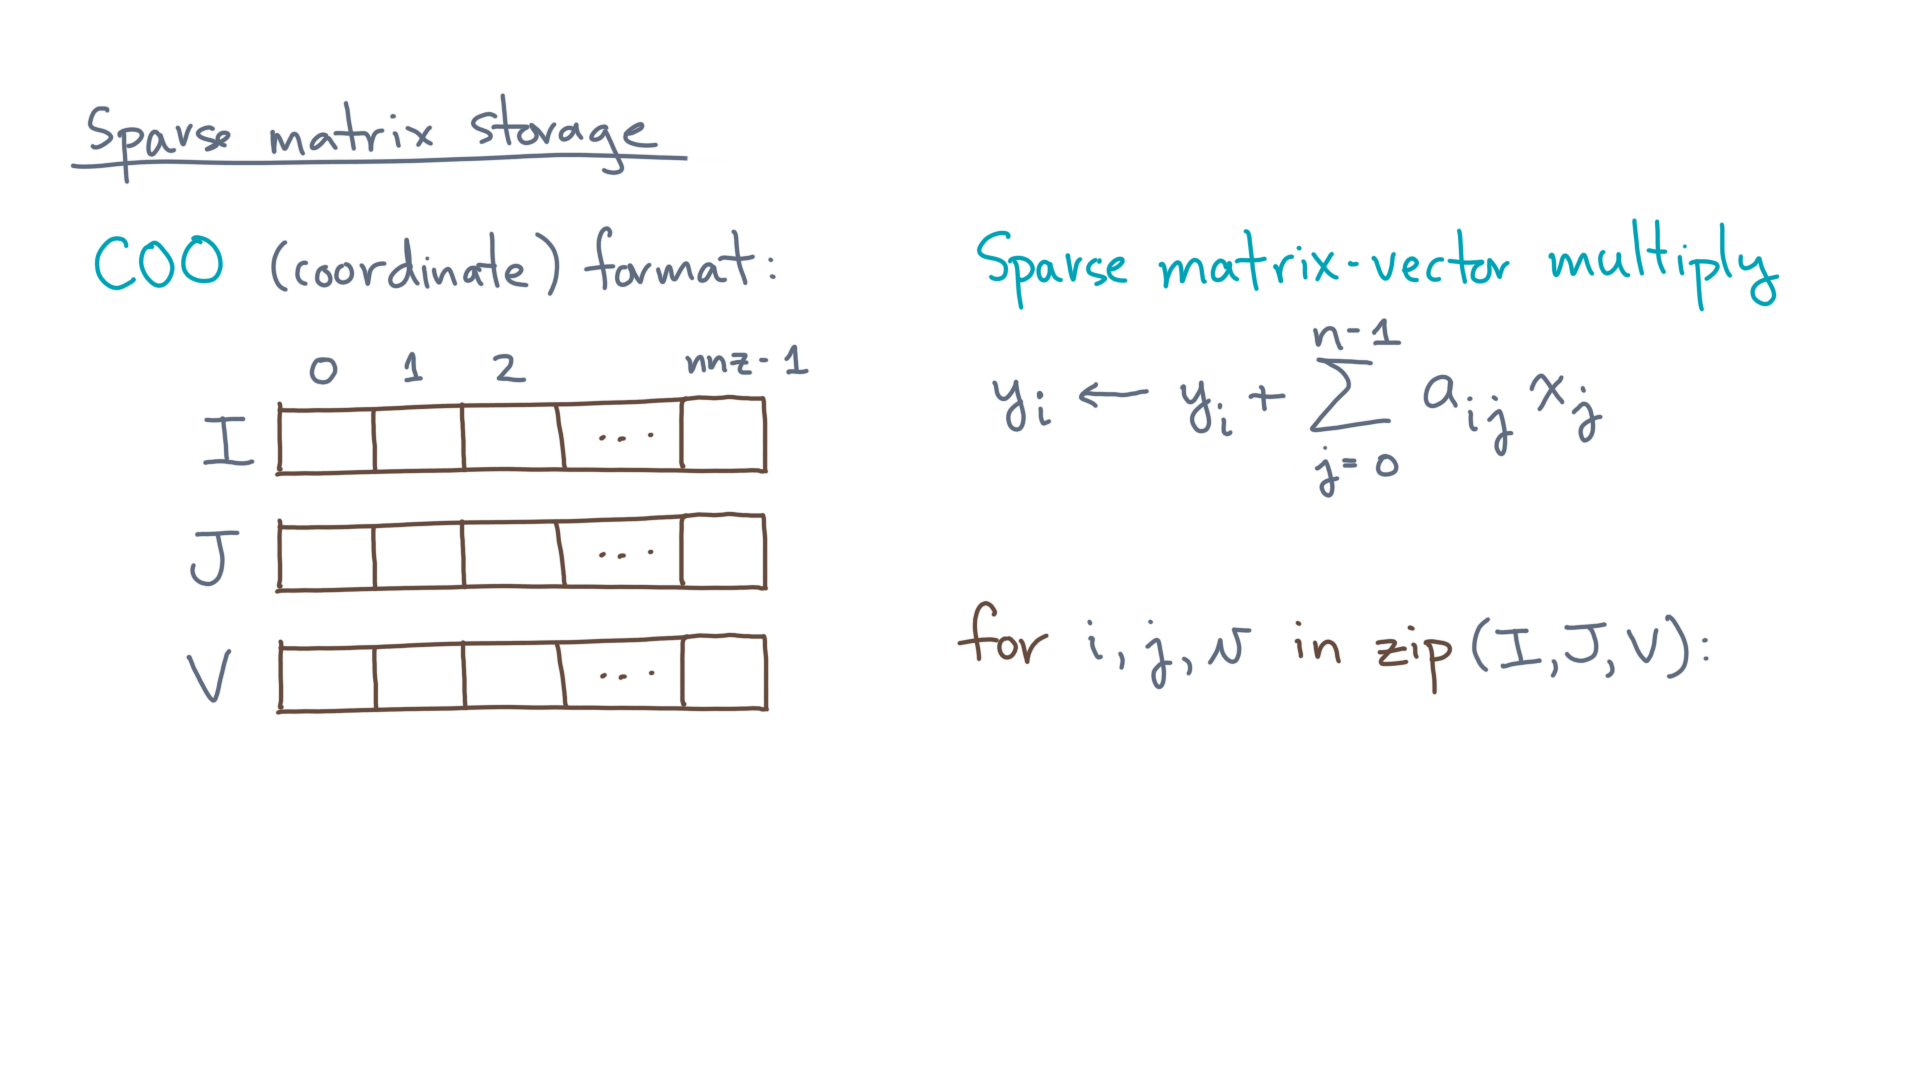 Sparse matrix storage
COO (coordinate) format:
0 1 2 nnz-1
I ...
J ...
V ...
Sparse matrix-vector multiply
n-1
yᵢ ← yᵢ + ∑ aᵢⱼ xⱼ
j=0
for i, j, v in zip (I, J, V):